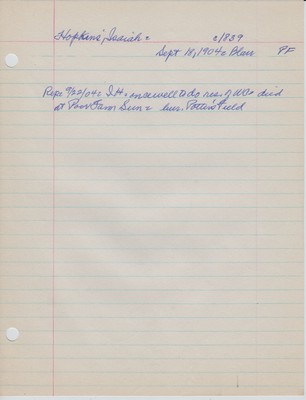 Hopkins, Isaiah = c1839
Sept 18, 1904 = Blair PF
Rep = 9/22/04 = I.H. = once well to do res. of WO = died
at Poor Farm Sun = bur. Potters Field